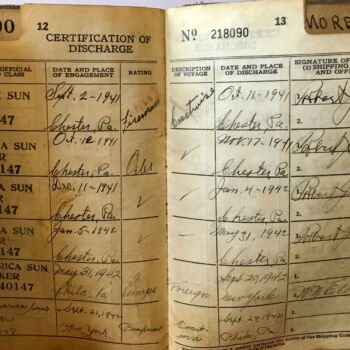 00 12 CERTIFICATION OF
DISCHARGE
Nº 218090 13
MORE
OFFICIAL
CLASS
DATE AND PLACE
OF ENGAGEMENT
RATING
DESCRIPTION
OF VOYAGE
DATE AND PLACE
OF DISCHARGE
SIGNATURE OF
(2) SHIPPING
AND OFFI
A SUN
0147
Sept. 2-1941
Chester, Pa.
Fireman
Coastwise
Oct. 11-1941
Chester, Pa.
2.
CA SUN
ER
0147
Oct. 12 1941
Chester, Pa.
Oiler
Nov. 17-1941
Chester, Pa.
2.
CA SUN
ER
0147
Dec. 11-1941
Chester Pa.
✓
✓
Jan. 4-1942
Chester Pa.
Robert
2.
CA SUN
ER
40147
Jan. 5-1942
Chester, Pa.
✓
May 31, 1942
Chester, Pa.
Robert
2.
ERICA SUN
KER
40147
May 31, 1942
Phila, Pa
Foreign
Sept 20, 1942
New York
2.
Sept. 21, 1942
New York
Pumpman
Coastwise
Sept. 27 1942
Phila Pa
1.
2.